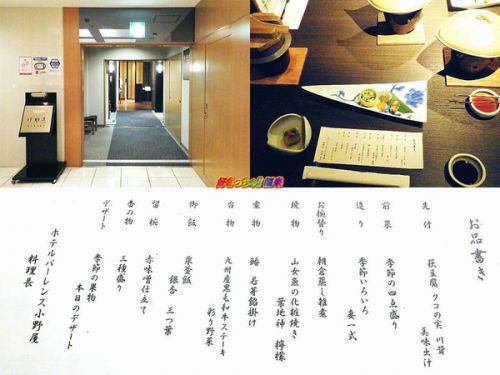 お品書き
先付
豆腐 クコの実 川茸
美味出汁
前菜
季節の四点盛り
造り
季節いろいろ 妻一式
お椀替り
朝倉蒸し 椎煮
焼物
山女魚の化粧焼き
葉地神 檸檬
煮物
若芽餡掛け
台物
九州産黒毛和牛ステーキ
彩り野菜
御飯
栗釜飯
銀杏 三つ葉
留椀
赤味噌仕立て
香の物
三種盛り
デザート
季節の果物
本日のデザート
ホテルパーレンス小野屋
料理長